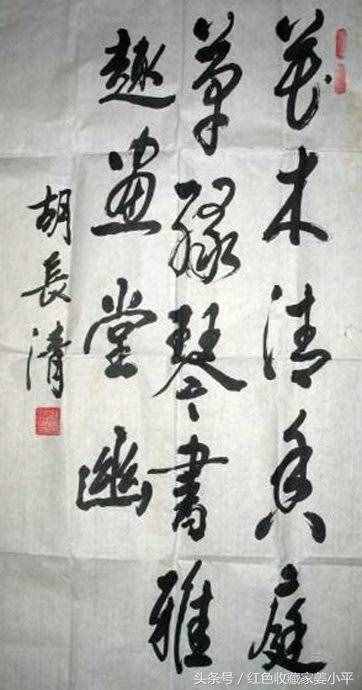 花木清香庭
草緑琴書雅
趣畫堂幽
胡長清
头条号 / 红色收藏家姜小平